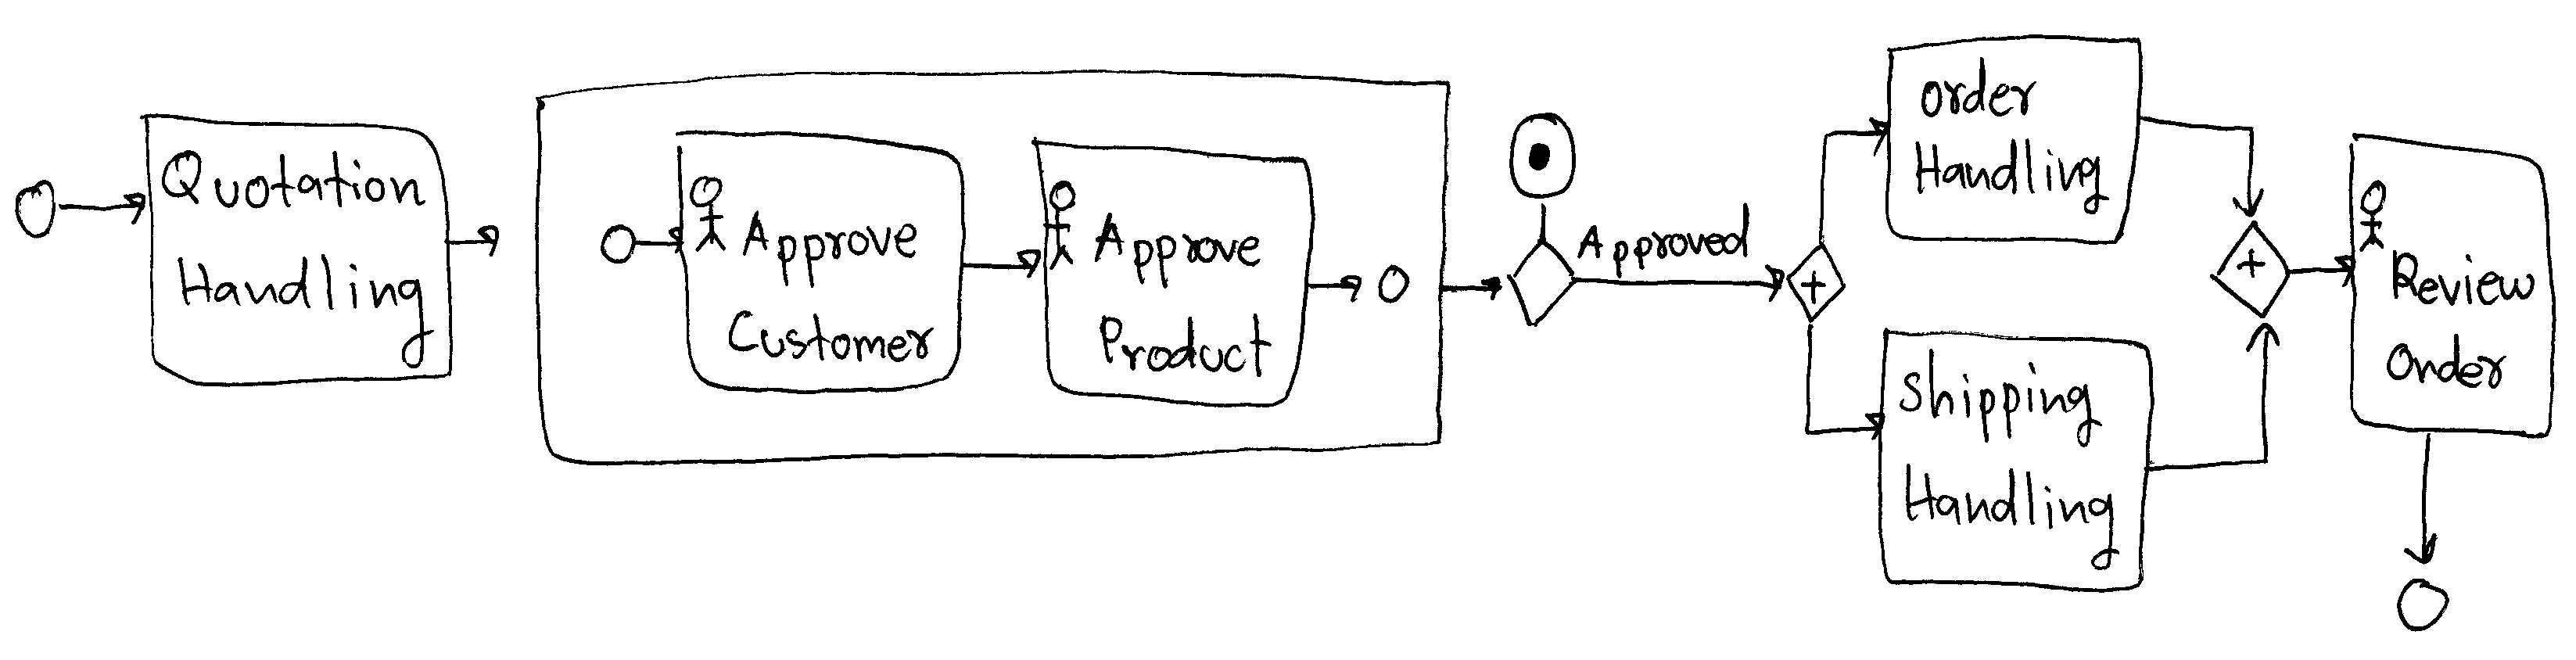 Quotation
Handling
Approve
Customer
Approve
Product
Approved
+
order
Handling
Shipping
Handling
+
Review
Order